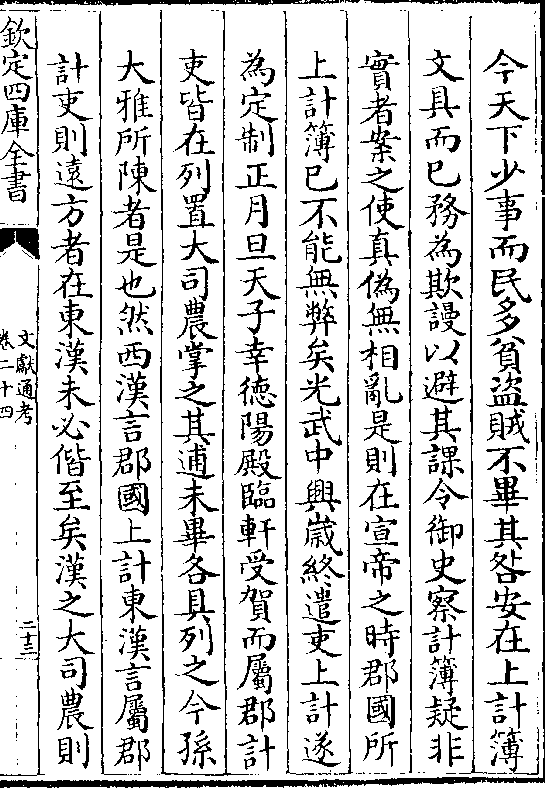 今天下少事而民多貧盜賊不畢其咎安在上計簿
文具而已務為欺謾以避其課令御史察計簿疑非
實者案之使真偽無相亂是則在宣帝之時郡國所
上計簿已不能無弊矣光武中興嵗終遣吏上計遂
為定制正月旦天子幸徳陽殿臨軒受賀而屬郡計
吏皆在列置大司農掌之其逋未畢各具列之今孫
大雅所陳者是也然西漢言郡國上計東漢言屬郡
計吏則遠方者在東漢未必偕至矣漢之大司農則
欽定四庫全書
文獻通考
卷二十四
二十三